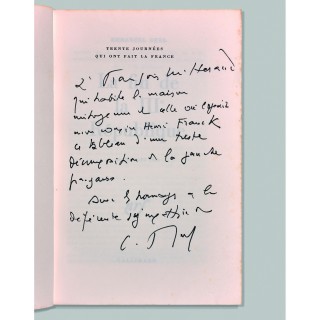 TRENTE JOURNÉES
QUI ONT FAIT LA FRANCE
à François Mitterand
qui habite la maison
mitoyenne à celle où
mon cousin Henri Franck
ce tableau d'une triste
Décomposition de la gauche
française.
Avec l'hommage de la
Déférente sympathie de